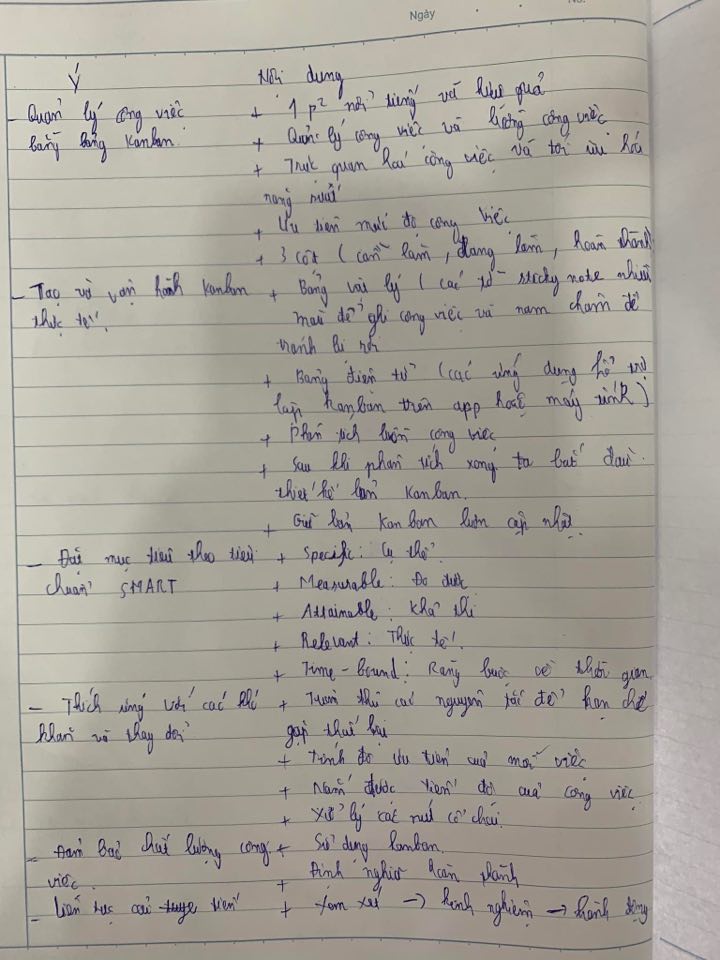 Ngày
No.
Ý Nội dung
- Quản lý công việc + 1 p² nổi tiếng và hiệu quả
bằng bảng Kanban. + Quản lý công việc và luồng công việc
+ Trực quan hoá công việc và tối ưu hoá
năng suất
+ Ưu tiên mức độ công việc
+ 3 cột (cần làm, đang làm, hoàn thành)
- Tạo và vận hành Kanban + Bảng vật lý (các tờ sticky note nhiều
thực tế. màu để ghi công việc và nam châm để
tránh bị rơi
+ Bảng điện tử (các ứng dụng hỗ trợ
lập Kanban trên app hoặc máy tính)
+ Phân tích luồng công việc
+ Sau khi phân tích xong ta bắt đầu
thiết kế bản Kanban.
+ Giữ bản Kanban luôn cập nhật.
- Đặt mục tiêu theo tiêu + Specific: Cụ thể
chuẩn SMART + Measurable: Đo được
+ Attainable: Khả thi
+ Relevant: Thực tế
+ Time-bound: Ràng buộc về thời gian
- Thích ứng với các khó + Tuân thủ các nguyên tắc để hạn chế
khăn và thay đổi gặp thất bại
+ Trình độ ưu tiên của mỗi việc
+ Nắm được tiến độ của công việc
+ Xử lý các nút cổ chai
- Đảm bảo chất lượng công + Sử dụng kanban.
việc. + Định nghĩa hoàn thành
- Liên tục cải tiến + Xem xét → kinh nghiệm → hành động